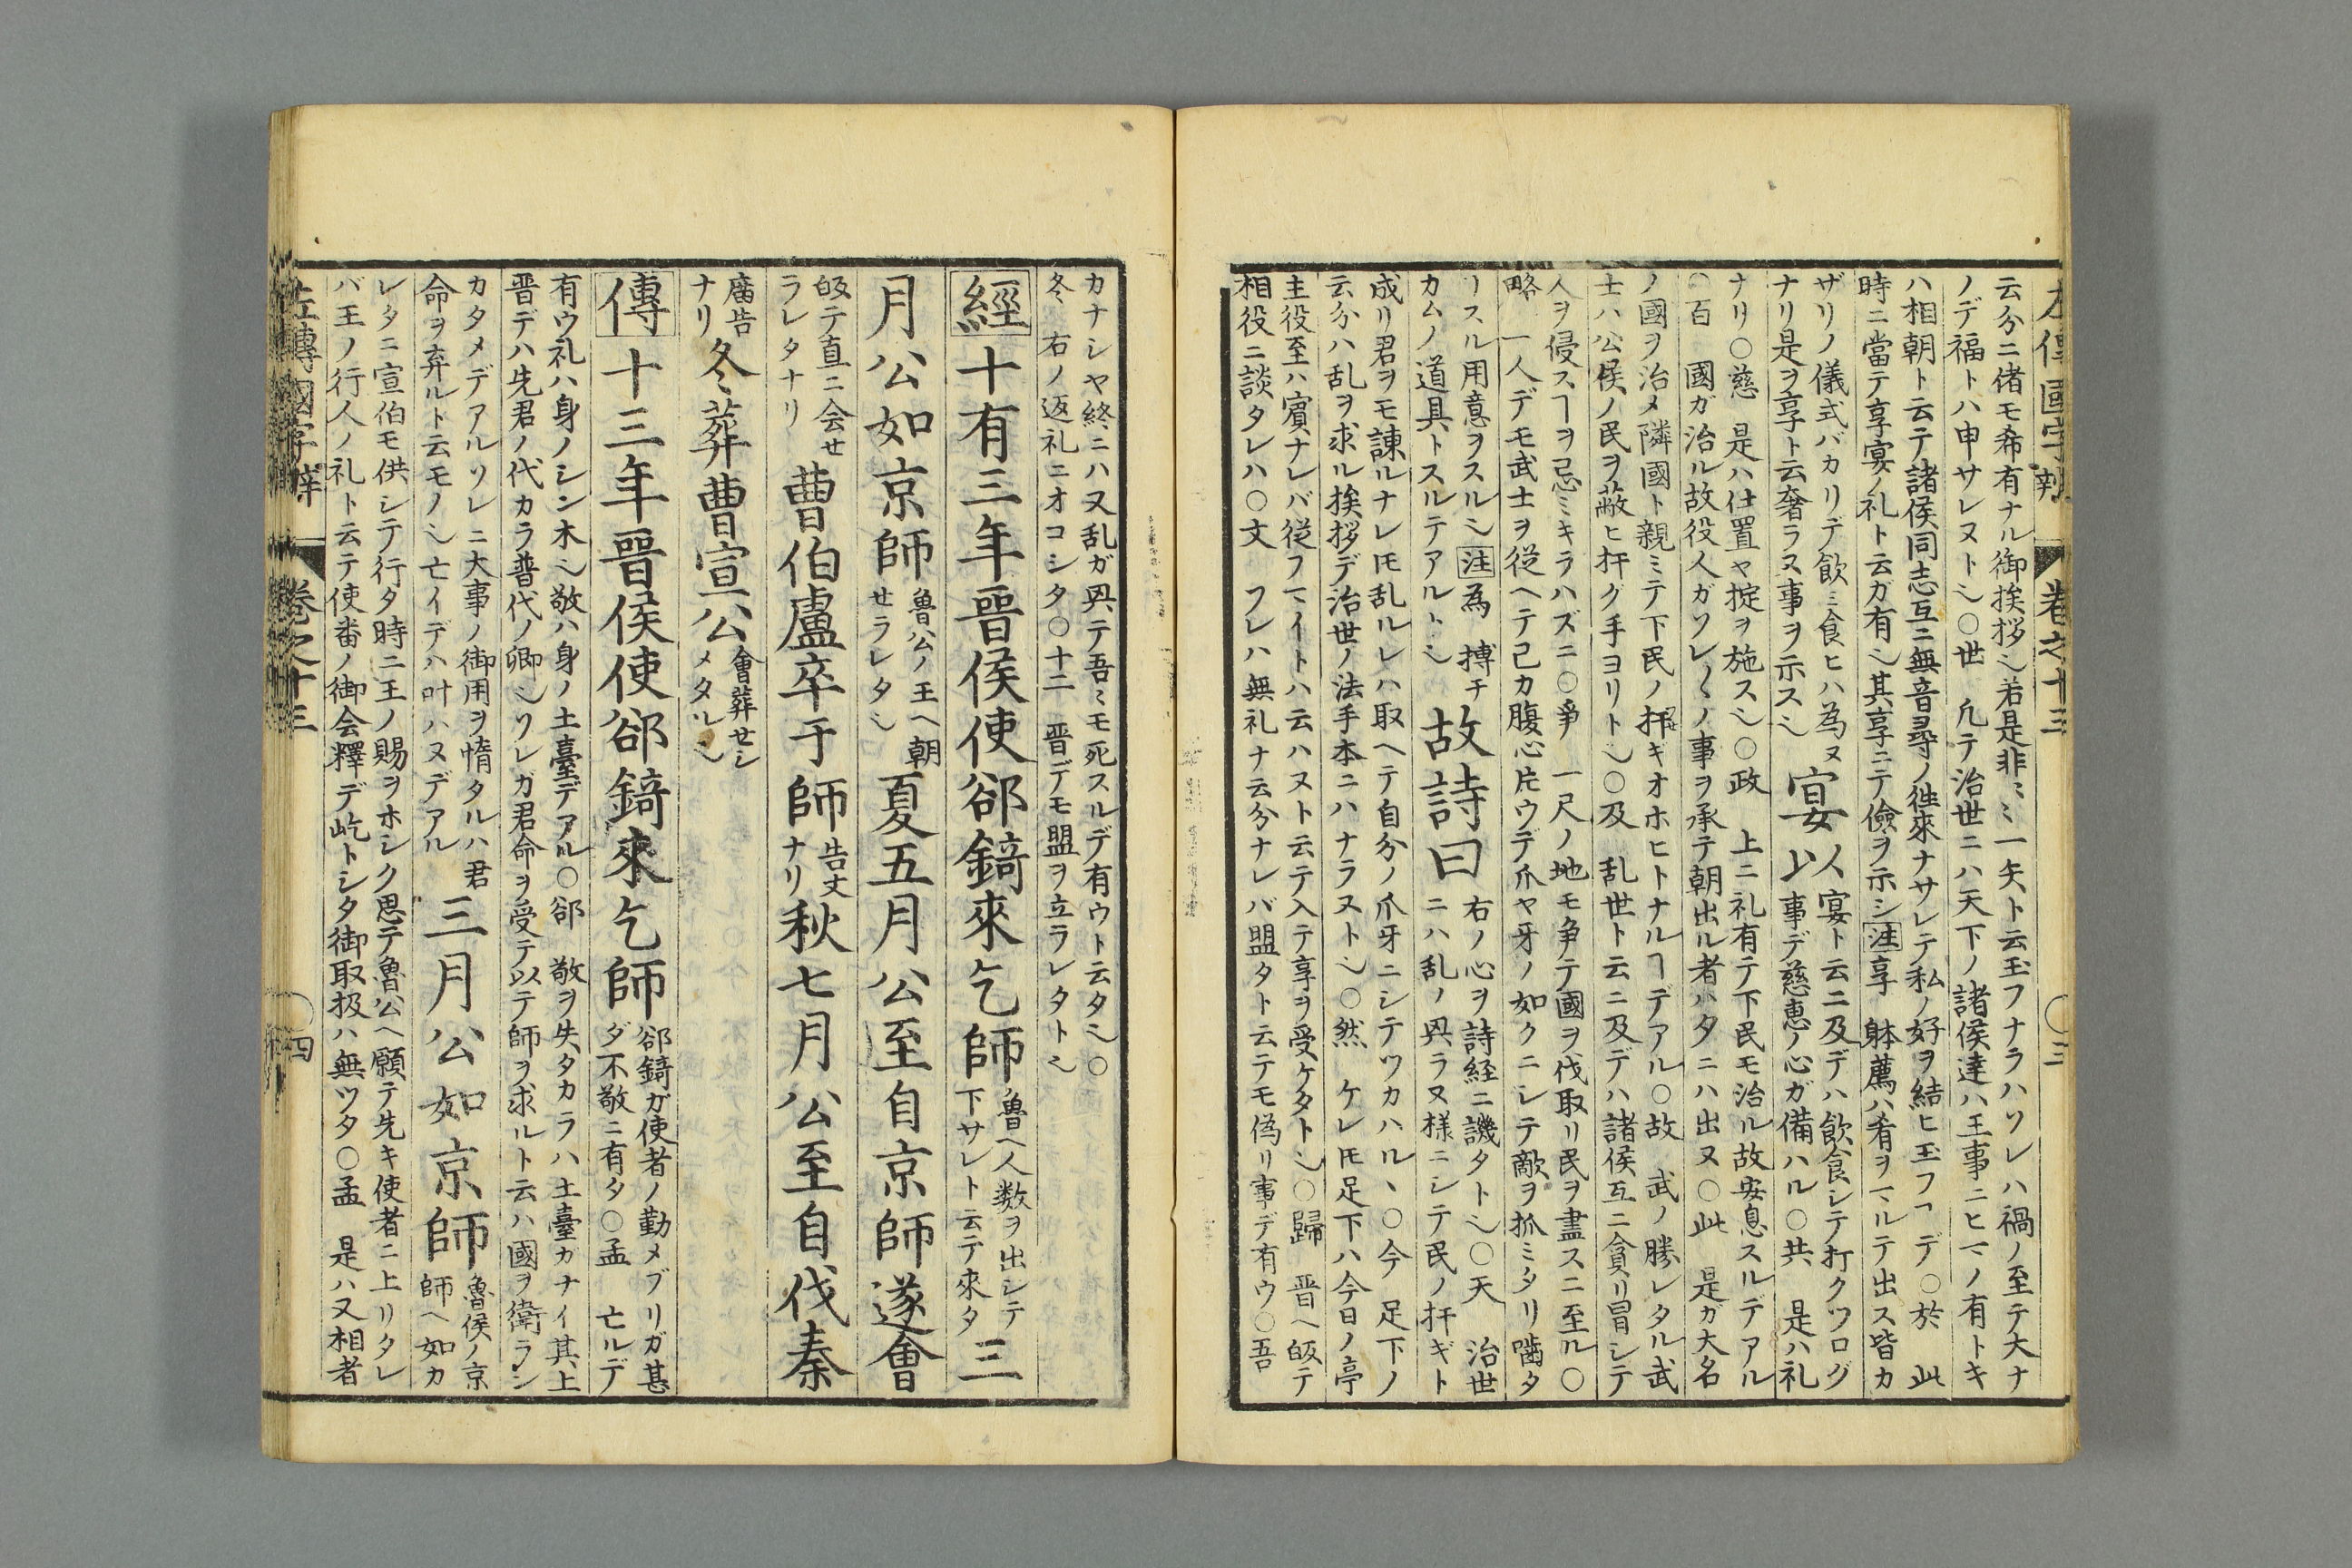 左傳國字辨 卷之十三 〇三
云分ニ偖モ希有ナル御挨拶〻若是非〻一矢ト云玉フナラハソレハ禍ノ至テ大ナ
ノデ福トハ申サレヌト〻〇世 凢テ治世ニハ天下ノ諸侯達ハ王事ニヒマノ有トキ
ハ相朝ト云テ諸侯同志互ニ無音尋ノ徃來ナサレテ私ノ好ヲ結ヒ玉フヿデ〇於 此
時ニ當テ享宴ノ礼ト云ガ有〻其享ニテ儉ヲ示シ注享 躰薦ハ肴ヲマルテ出ス皆カ
ザリノ儀式バカリデ飲ミ食ヒハ為ヌ
ナリ是ヲ享ト云奢ラヌ事ヲ示ス〻
宴以
宴ト云ニ及デハ飲食シテ打クツログ
事デ慈惠ノ心ガ備ハル〇共 是ハ礼
ナリ〇慈 是ハ仕置ヤ掟ヲ施ス〻〇政 上ニ礼有テ下民モ治ル故安息スルデアル
〇百 國ガ治ル故役人ガソレ〱ノ事ヲ承テ朝出ル者ハタニハ出ヌ〇此 是ガ大名
ノ國ヲ治メ隣國ト親ミテ下民ノ扞ギオホヒトナルヿデアル〇故 武ノ勝レタル武
士ハ公侯ノ民ヲ蔽ヒ扞グ手ヨリト〻〇及 乱世ト云ニ及デハ諸侯互ニ貪リ冒シテ
人ヲ侵スヿヲ忌ミキラハズニ〇爭 一尺ノ地モ争テ國ヲ伐取リ民ヲ盡スニ至ル〇
略 一人デモ武士ヲ従ヘテ己カ腹心片ウデ爪ヤ牙ノ如クニシテ敵ヲ抓ミタリ噛タ
リスル用意ヲスル〻注為 搏チ
カムノ道具トスルテアルト〻
故詩曰
右ノ心ヲ詩経ニ譏タト〻〇天 治世
ニハ乱ノ興ラヌ様ニシテ民ノ扞ギト
成リ君ヲモ諌ルナレ𪜈乱ルレハ取ヘテ自分ノ爪牙ニシテツカハル〻〇今 足下ノ
云分ハ乱ヲ求ル挨拶デ治世ノ法手本ニハナラヌト〻〇然 ケレ𪜈足下ハ今日ノ亭
主役至ハ賔ナレバ従フマイトハ云ハヌト云テ入テ享ヲ受ケタト〻〇歸 晋ヘ皈テ
相役ニ談タレハ〇文 フレハ無礼ナ云分ナレバ盟タト云テモ偽リ事デ有ウ〇吾
カナシヤ終ニハ又乱ガ興テ吾〻モ死スルデ有ウト云タ〻〇
冬 右ノ返礼ニオコシタ〇十二 晋デモ盟ヲ立ラレタト〻
經十有三年晉侯使郤錡來乞師
魯ヘ人数ヲ出シテ
下サレト云テ來タ
三
月公如京師
魯公ノ王ヘ朝
せラレタ〻
夏五月公至自京師遂會
皈テ直ニ会せ
ラレタナリ
曹伯盧卒于師
告丈
ナリ
秋七月公至自伐秦
廟告
ナリ
冬葬曹宣公
會葬せシ
メタル〻
傳十三年晉侯使郤錡來乞師
郤錡ガ使者ノ勤メブリガ甚
ダ不敬ニ有タ〇孟 亡ルデ
有ウ礼ハ身ノシン木〻敬ハ身ノ土臺デアル〇郤 敬ヲ失タカラハ土臺カナイ其上
晋デハ先君ノ代カラ普代ノ卿〻ソレガ君命ヲ受テ以テ師ヲ求ルト云ハ國ヲ衛ラン
カタメデアルソレニ大事ノ御用ヲ惰タルハ君
命ヲ弃ルト云モノ〻亡イデハ叶ハヌデアル
三月公如京師
魯侯ノ京
師ヘ如カ
レタニ宣伯モ供シテ行タ時ニ王ノ賜ヲホシク思テ魯公ヘ願テ先キ使者ニ上リタレ
バ王ノ行人ノ礼ト云テ使番ノ御会釋デ屹トシタ御取扱ハ無ツタ〇孟 是ハ又相者
左傳國字辨 卷之十三 〇四